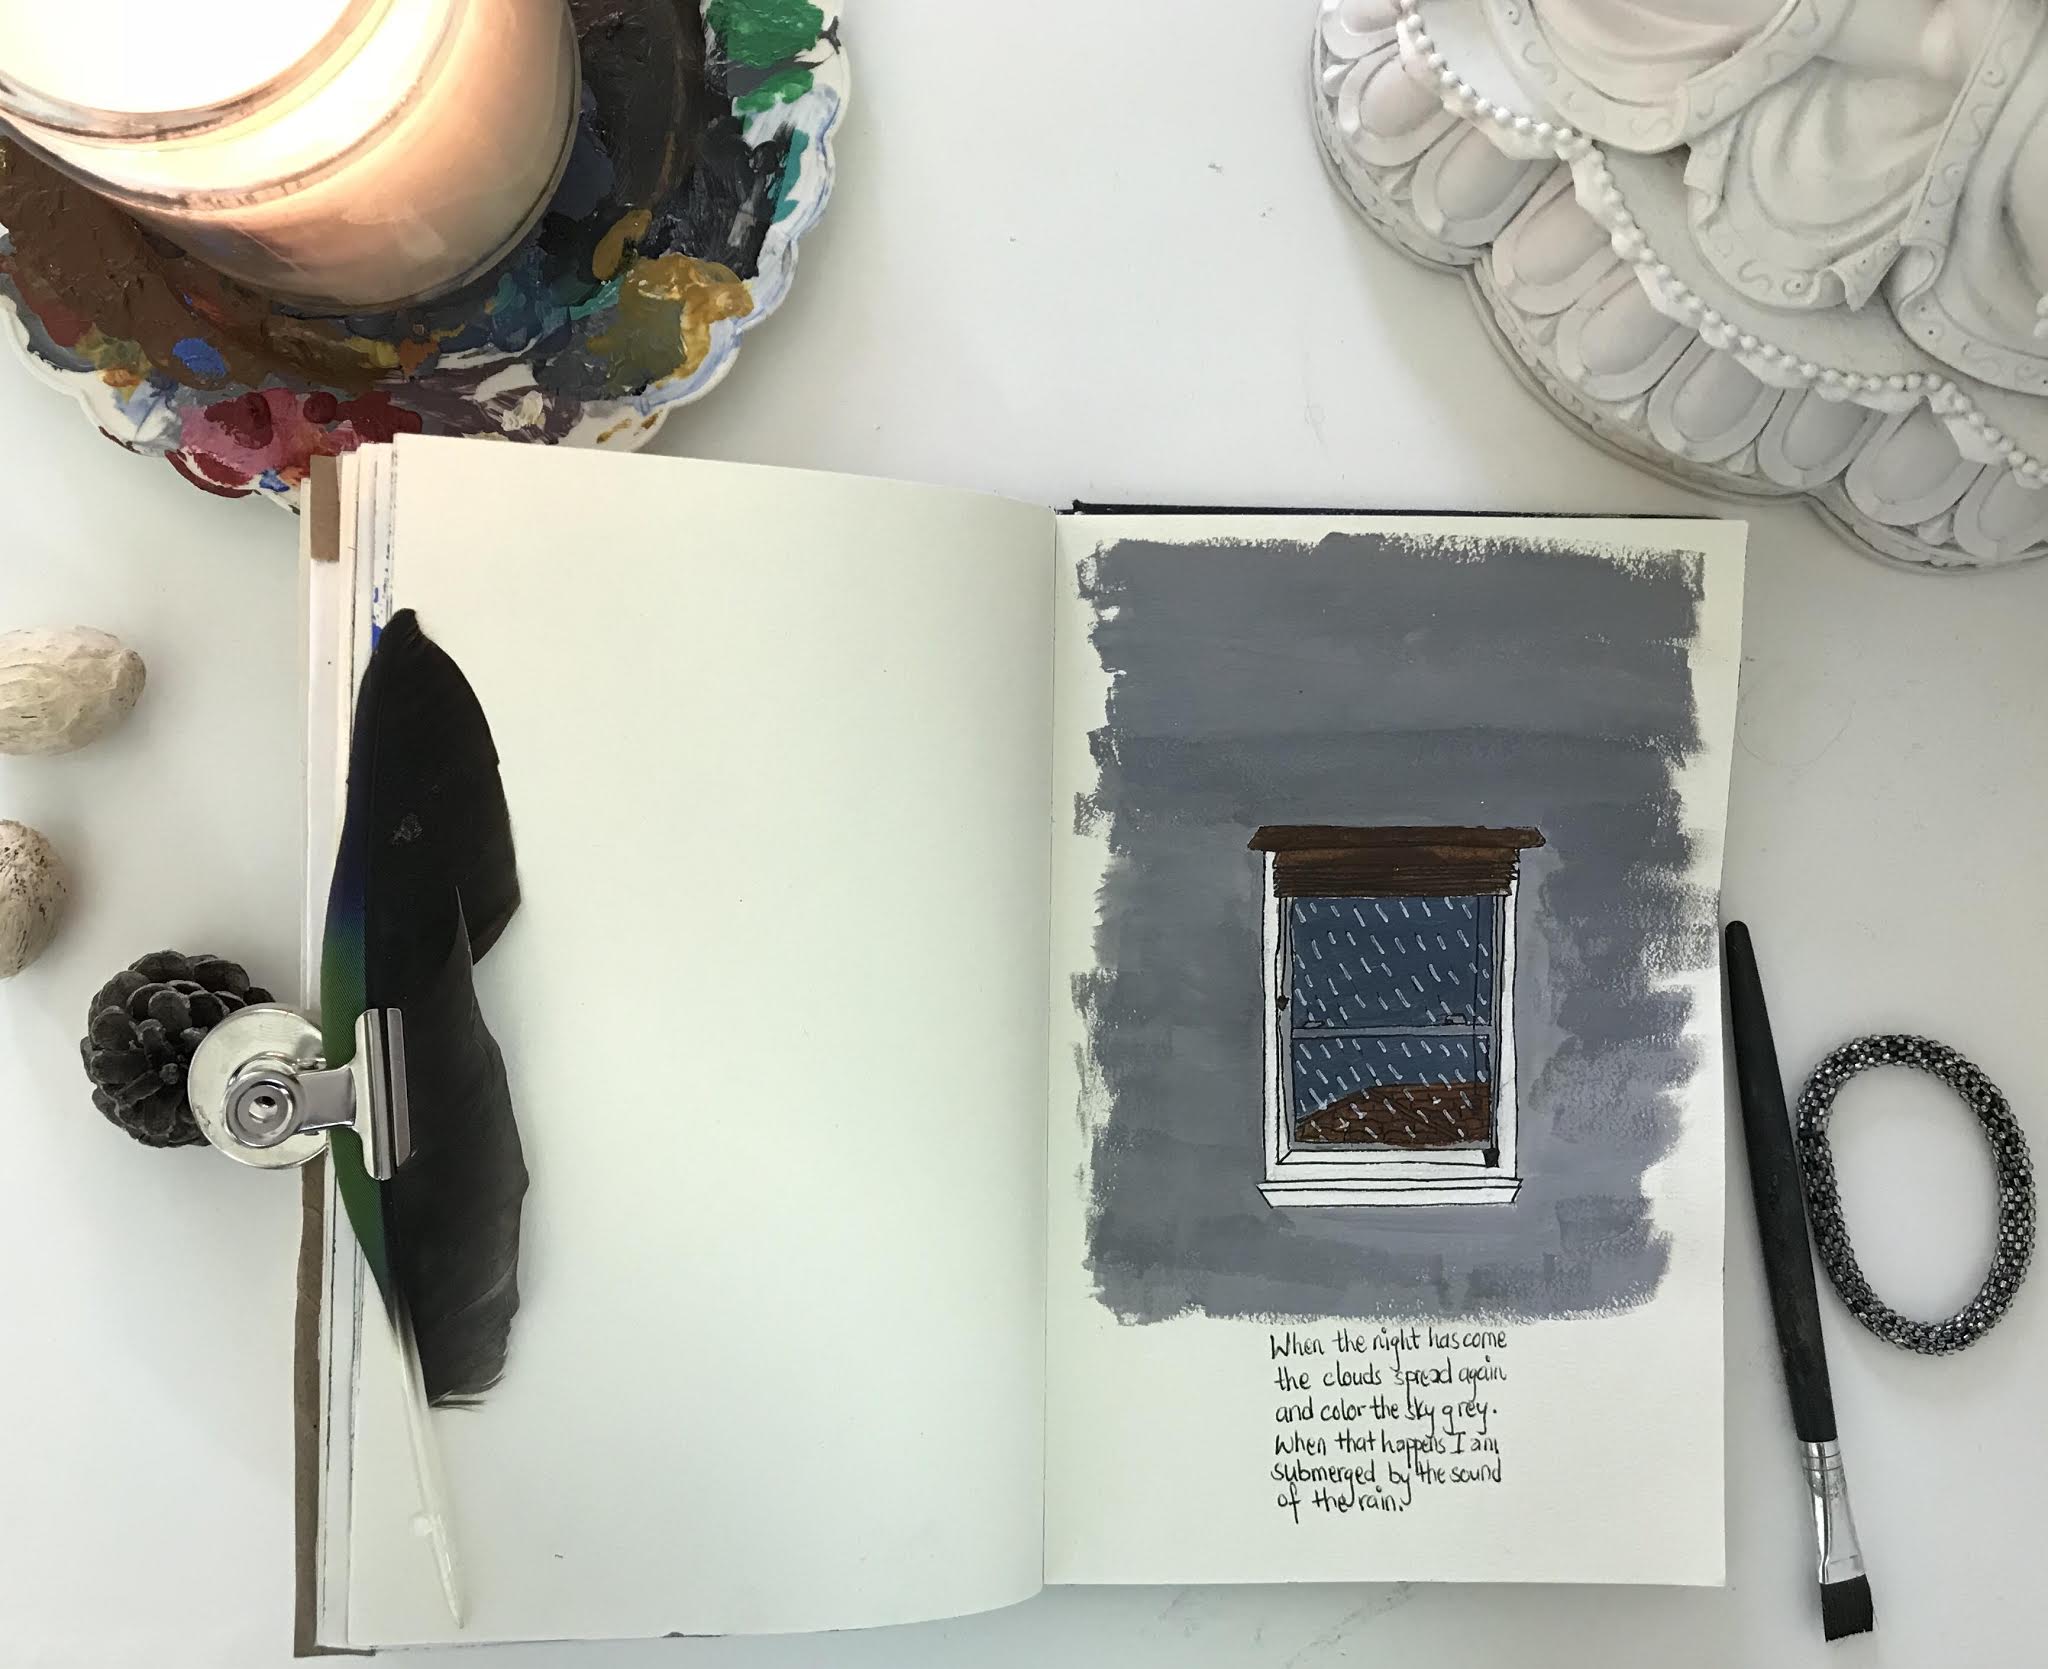 When the night has come
the clouds spread again
and color the sky grey.
When that happens I am
submerged by the sound
of the rain.